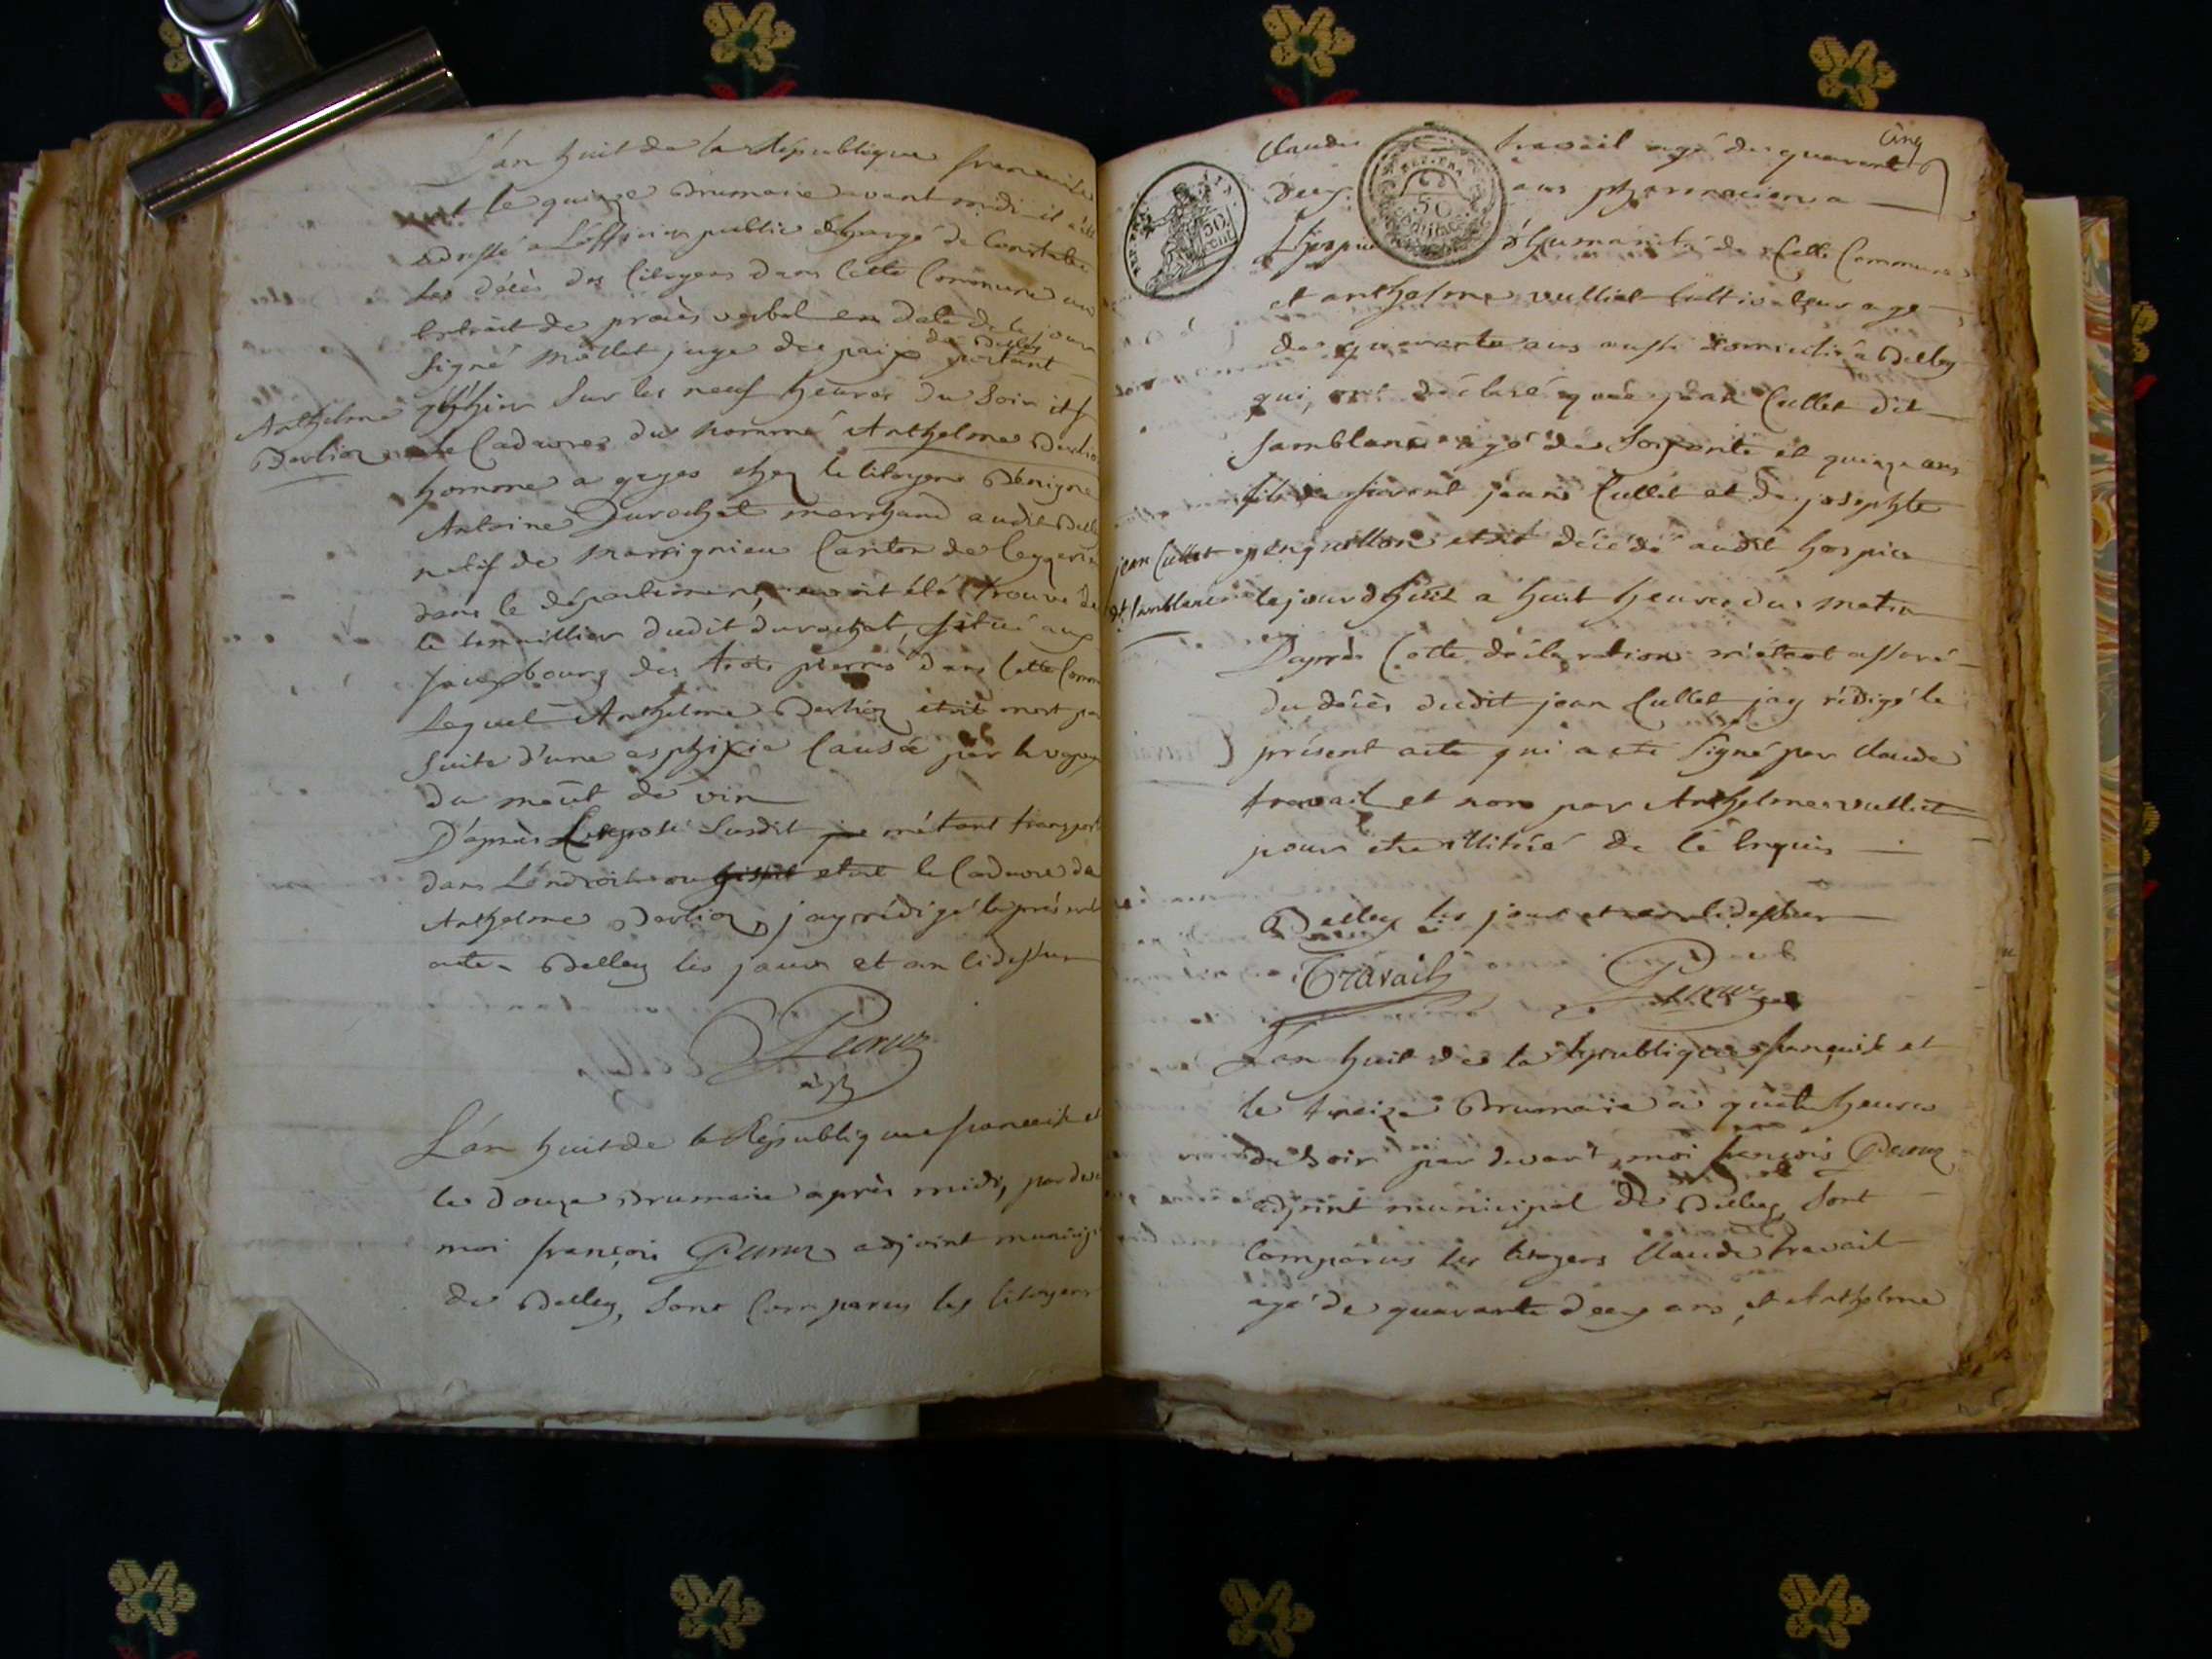 L'an huit de la République francaise
et le quinze Brumaire avant midi il a été
adressé a L'officier public chargé de Constater
les décès des Citoyens dans Cette Commune un
Extrait de procès verbal en date de le jour
signé Mollet juge de paix de Belley portant
qu'hier sur les neuf heures du soir
Anthelme
Berlioz
le Cadavre du nommé Anthelme Berlioz
homme a gages chez le Citoyen Bénigne
Antoine Durochat marchand audit Belley
natif de Massignieu Canton de Ceyzerieu
dans le département, avoit été trouvé dans
le dudit durochat, situé aux
fauxbourg des trois pierres dans Cette Commune
Lequel Anthelme Berlioz étoit mort par
suite d'une asphixie Causée par la vapeur
du moût de vin
D'après L'exposé susdit je m'étant transporté
dans L'endroit ou gissoit etoit le Cadavre de
Anthelme Berlioz, j'ay rédigé le présent
acte. Belley les jour et an cidessus
Peroux
adjt
L'an huit de la République francaise et
le douze Brumaire après midi, pardevant
moi françois Peroux adjoint municipal
de Belley, sont Comparus les Citoyens
Cinq
Claude travail agé de quarante
deux ans pharmacien a
L'hospice d'humanité de Cette Commune
et anthelme vulliet Cultivateur agé
de quarante ans aussi domicilié a Belley
qui ont déclaré que jean Cullet dit
samblanc agé de soixante et quinze ans
fils de jean Cullet et de josephte
jean Cullet
dt. samblanc
etoit décédé audit hospice
cejourdhuit a huit heures du matin
D'après Cette déclaration m'étant assuré
du décès dudit jean Cullet jay rédigé le
présent acte qui a été signé par Claude
travail et non par Anthelme vulliet
pour etre illitéré de ce Enquis
Belley les jour et an cidessus
Travail Peroux
L'an huit de la République française et
le treize Brumaire a quatre heures
du soir par devant moi françois Peroux
adjoint municipal de Belley, sont
Comparus les Citoyens Claude travail
agé de quarante deux ans, et Anthelme